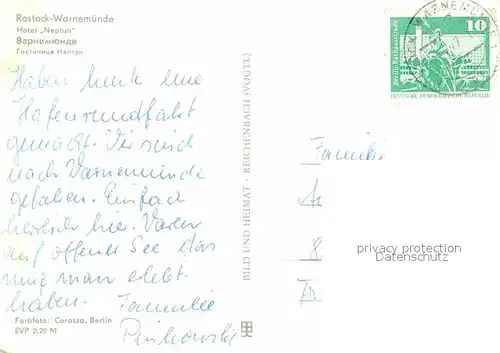 Rostock-Warnemünde
Hotel „Neptun"
Варнемюнде
Гостиница Нептун
Haben heute eine
Hafenrundfahrt
gemacht. Wir sind
nach Warnemünde
gefahren. Einfach
herrlich hier. Waren
auf offener See das
muß man erlebt
haben. Familie
Farbfoto: Corazza, Berlin
EVP 0,20 M
BILD UND HEIMAT · REICHENBACH (VOGTL)
WARNEMÜNDE
10
Berlin, Rathausstraße
DEUTSCHE DEMOKRATISCHE REPUBLIK
Familie
privacy protection
Datenschutz